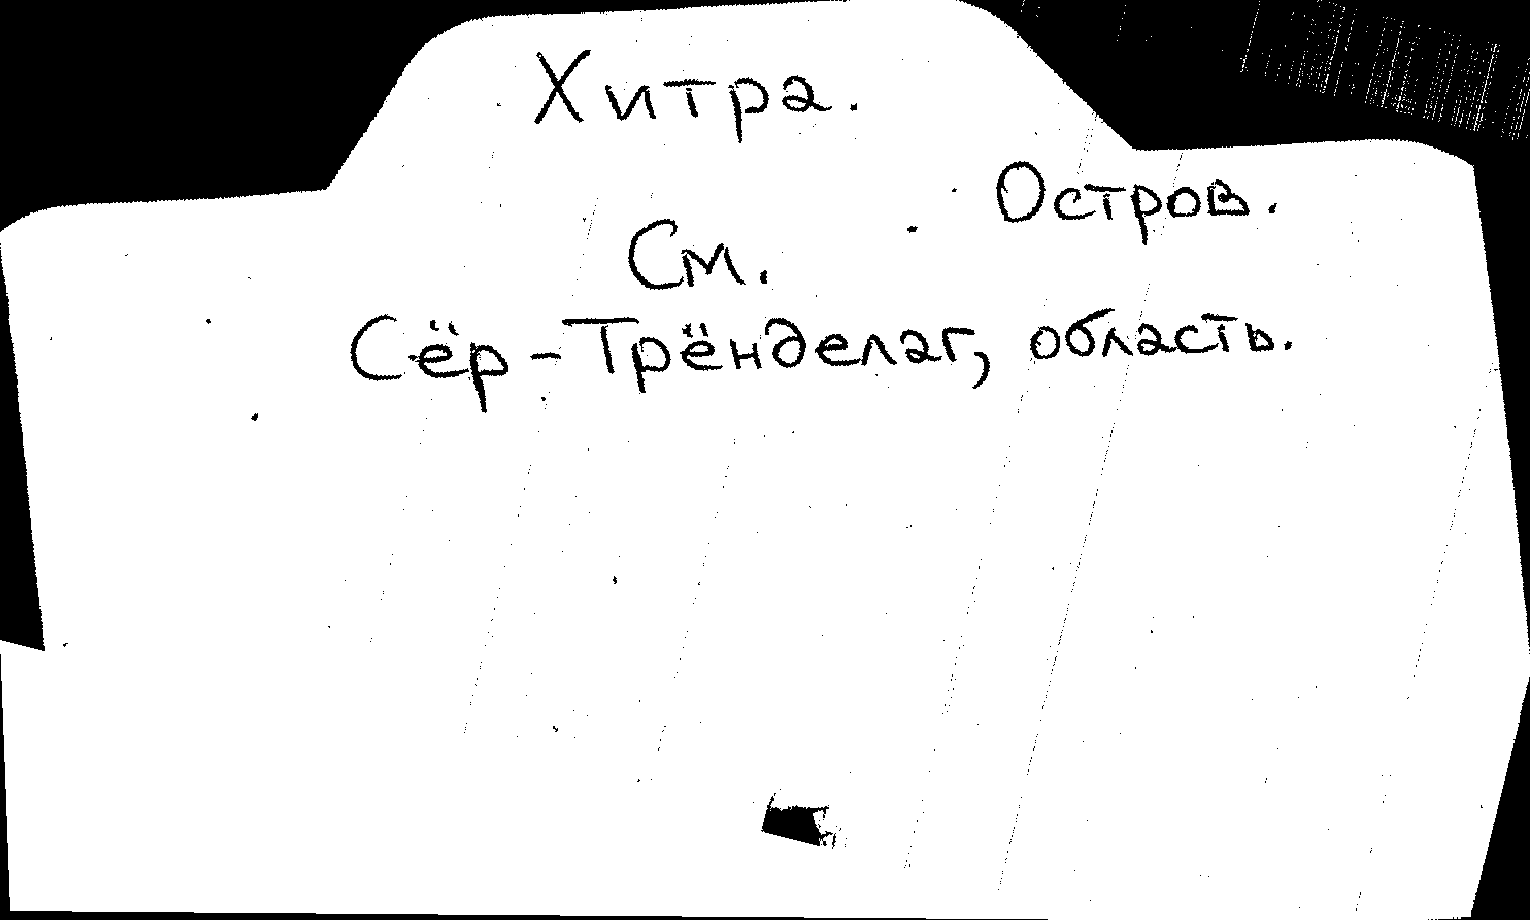 Хитра.
Остров.
См.
Сёр-Трёнделаг, область.